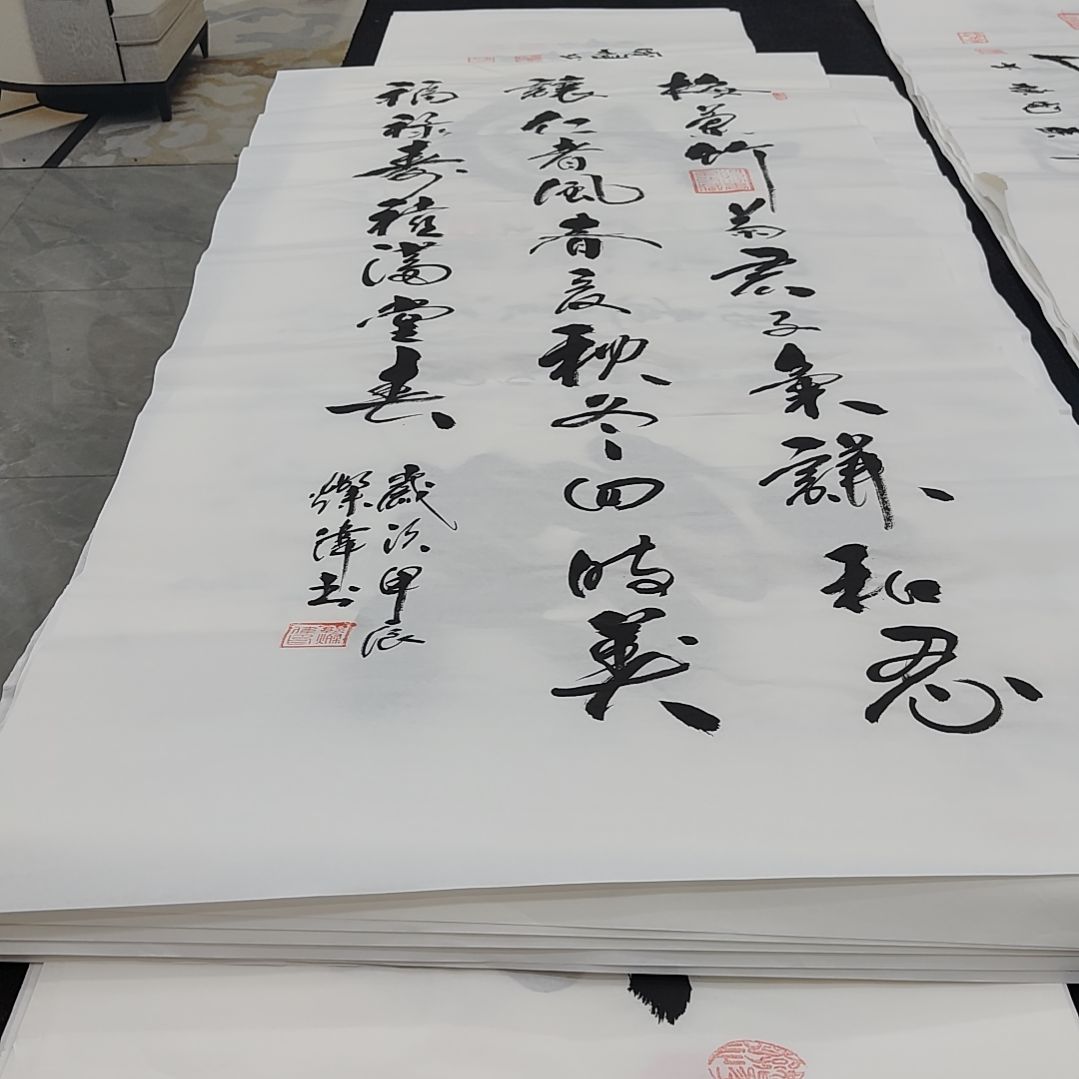 梅蘭竹菊君子氣謙和忍
讓仁者風春夏秋冬四時美
福祿壽禧滿堂春
歲次甲辰
燦偉書